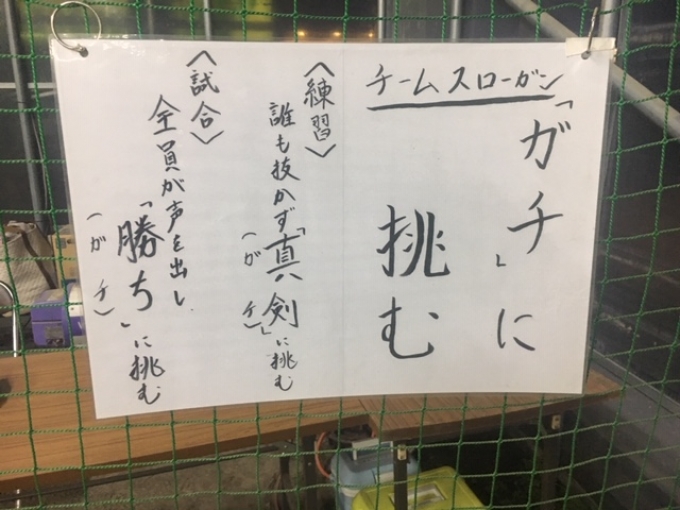 チームスローガン
「ガチ」に
挑む
〈練習〉
誰も抜かず「真剣」に挑む
(ガチ)
〈試合〉
全員が声を出し
「勝ち」に挑む
(ガチ)